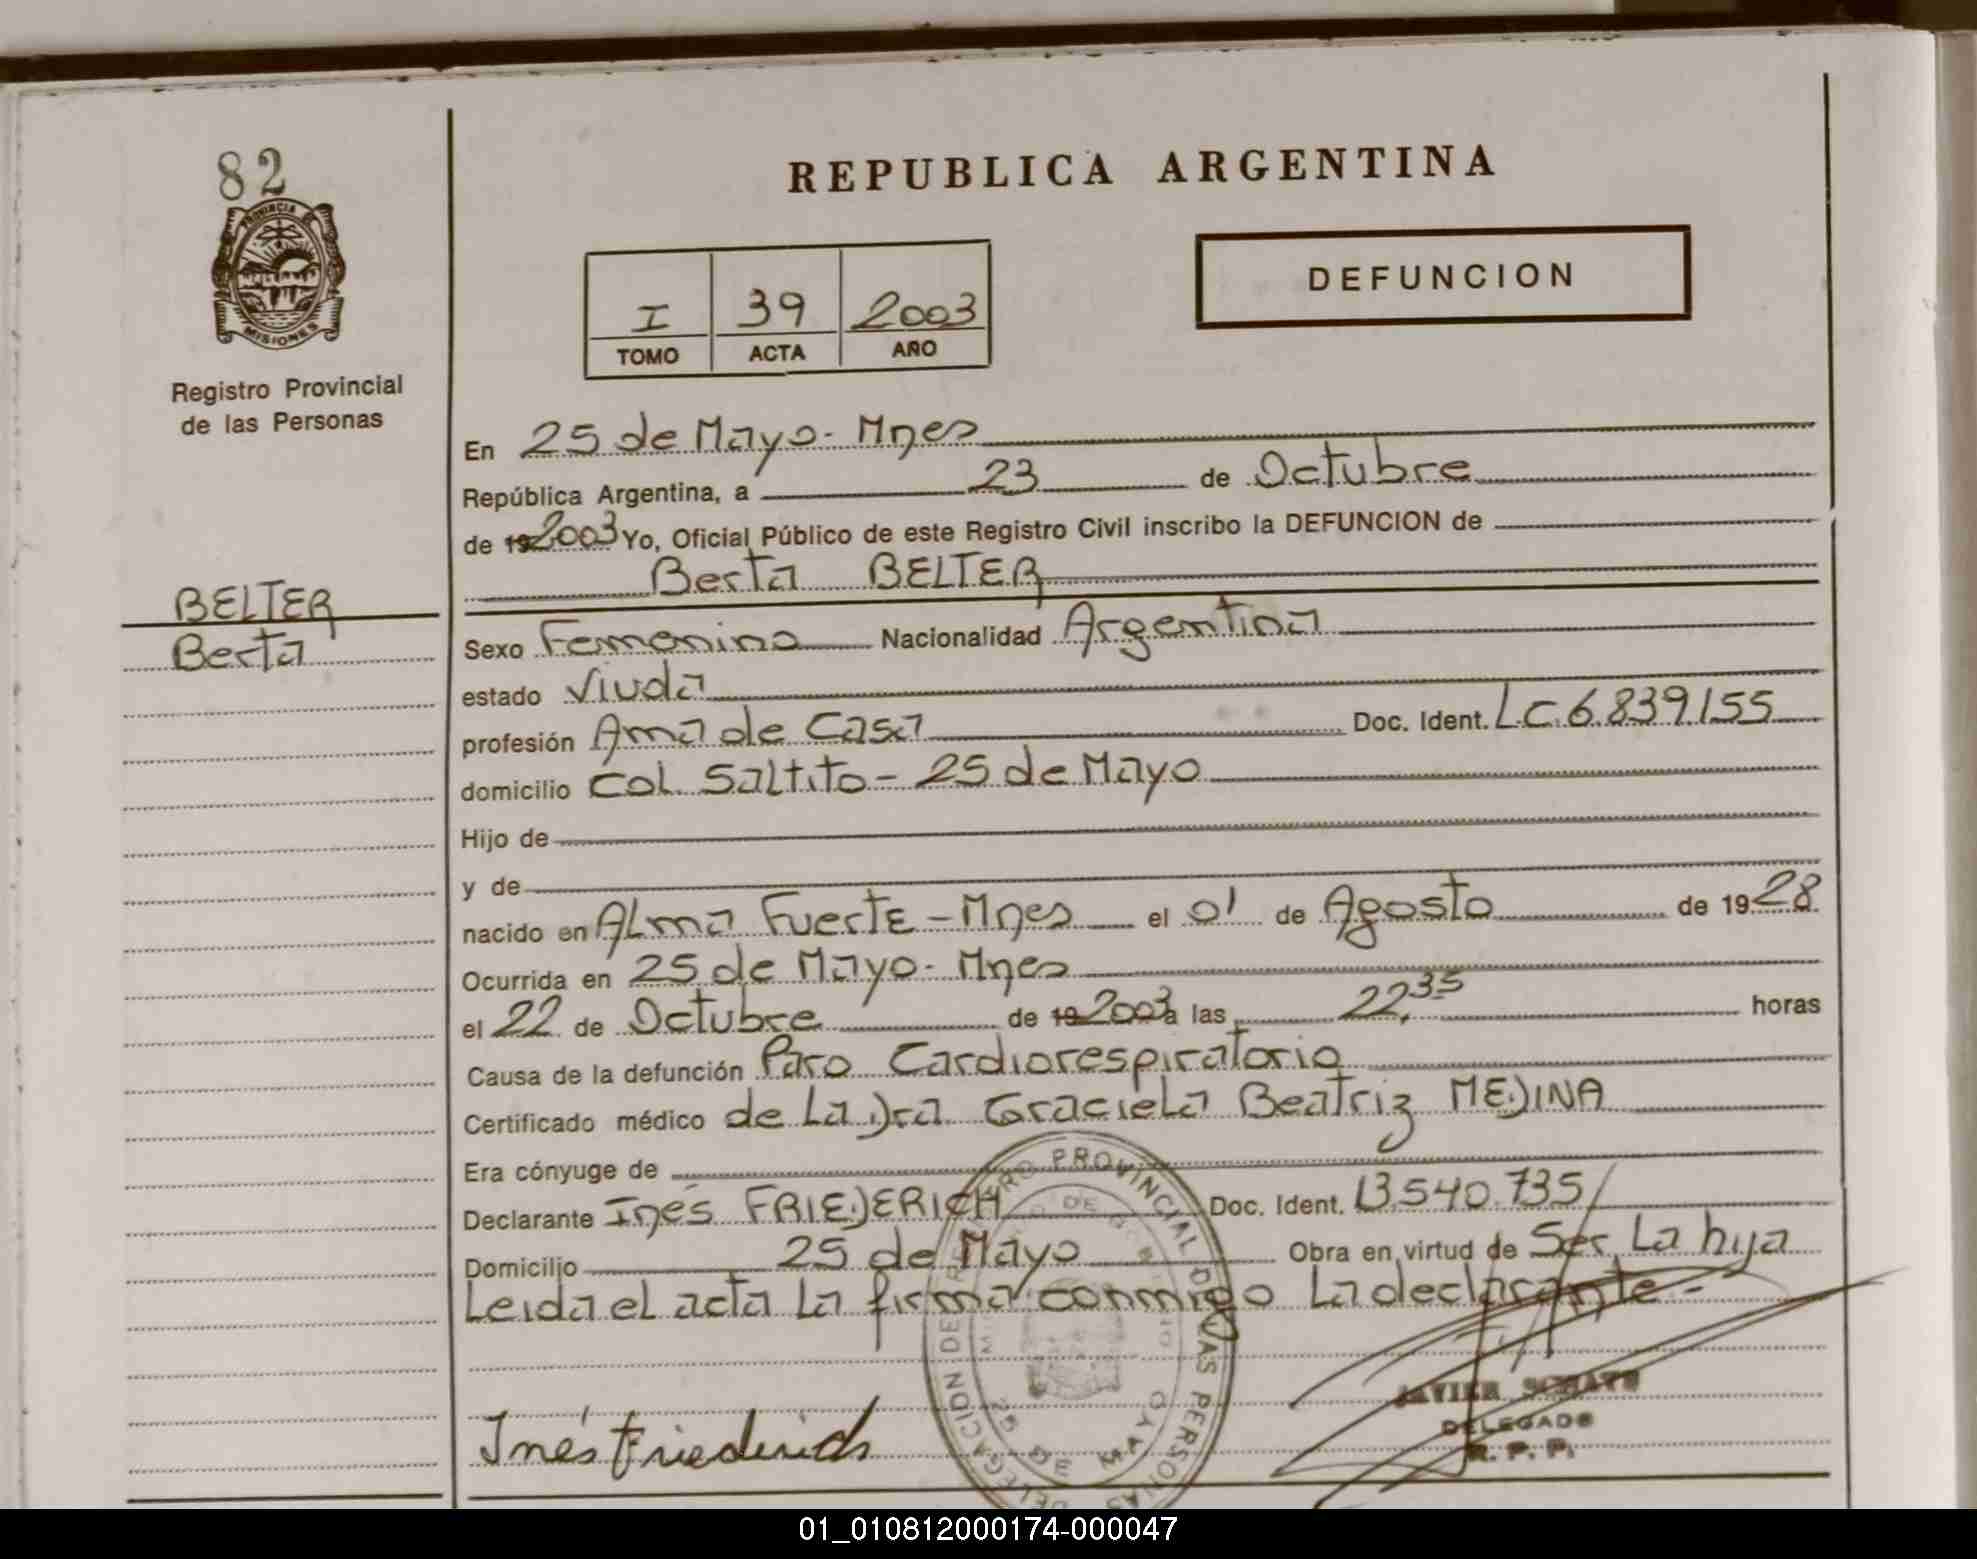 82
PROVINCIA DE
MISIONES
Registro Provincial
de las Personas
BELTER
Berta
REPUBLICA ARGENTINA
I 39 2003
TOMO ACTA AÑO
DEFUNCION
En 25 de Mayo - Mnes
República Argentina, a 23 de Octubre
de 19 2003 Yo, Oficial Público de este Registro Civil inscribo la DEFUNCION de
Berta BELTER
Sexo Femenino Nacionalidad Argentina
estado Viuda
profesión Ama de Casa Doc. Ident. L.C. 6.839.155
domicilio Col. Saltito - 25 de Mayo
Hijo de
y de
nacido en Alma Fuerte - Mnes el 01 de Agosto de 19 28
Ocurrida en 25 de Mayo - Mnes
el 22 de Octubre de 19 2003 a las 22,35 horas
Causa de la defunción Paro Cardiorespiratorio
Certificado médico de La Dra Graciela Beatriz MEDINA
Era cónyuge de
Declarante Inés FRIEDERICH Doc. Ident. 13.540.735
Domicilio 25 de Mayo Obra en virtud de Ser La hija
Leida el acta La firma conmigo La declarante -
Inés Friederich
DELEGACION DEL REGISTRO PROVINCIAL DE LAS PERSONAS
25 DE MAYO
JAVIER
DELEGADO
R. P. P.
01_010812000174-000047